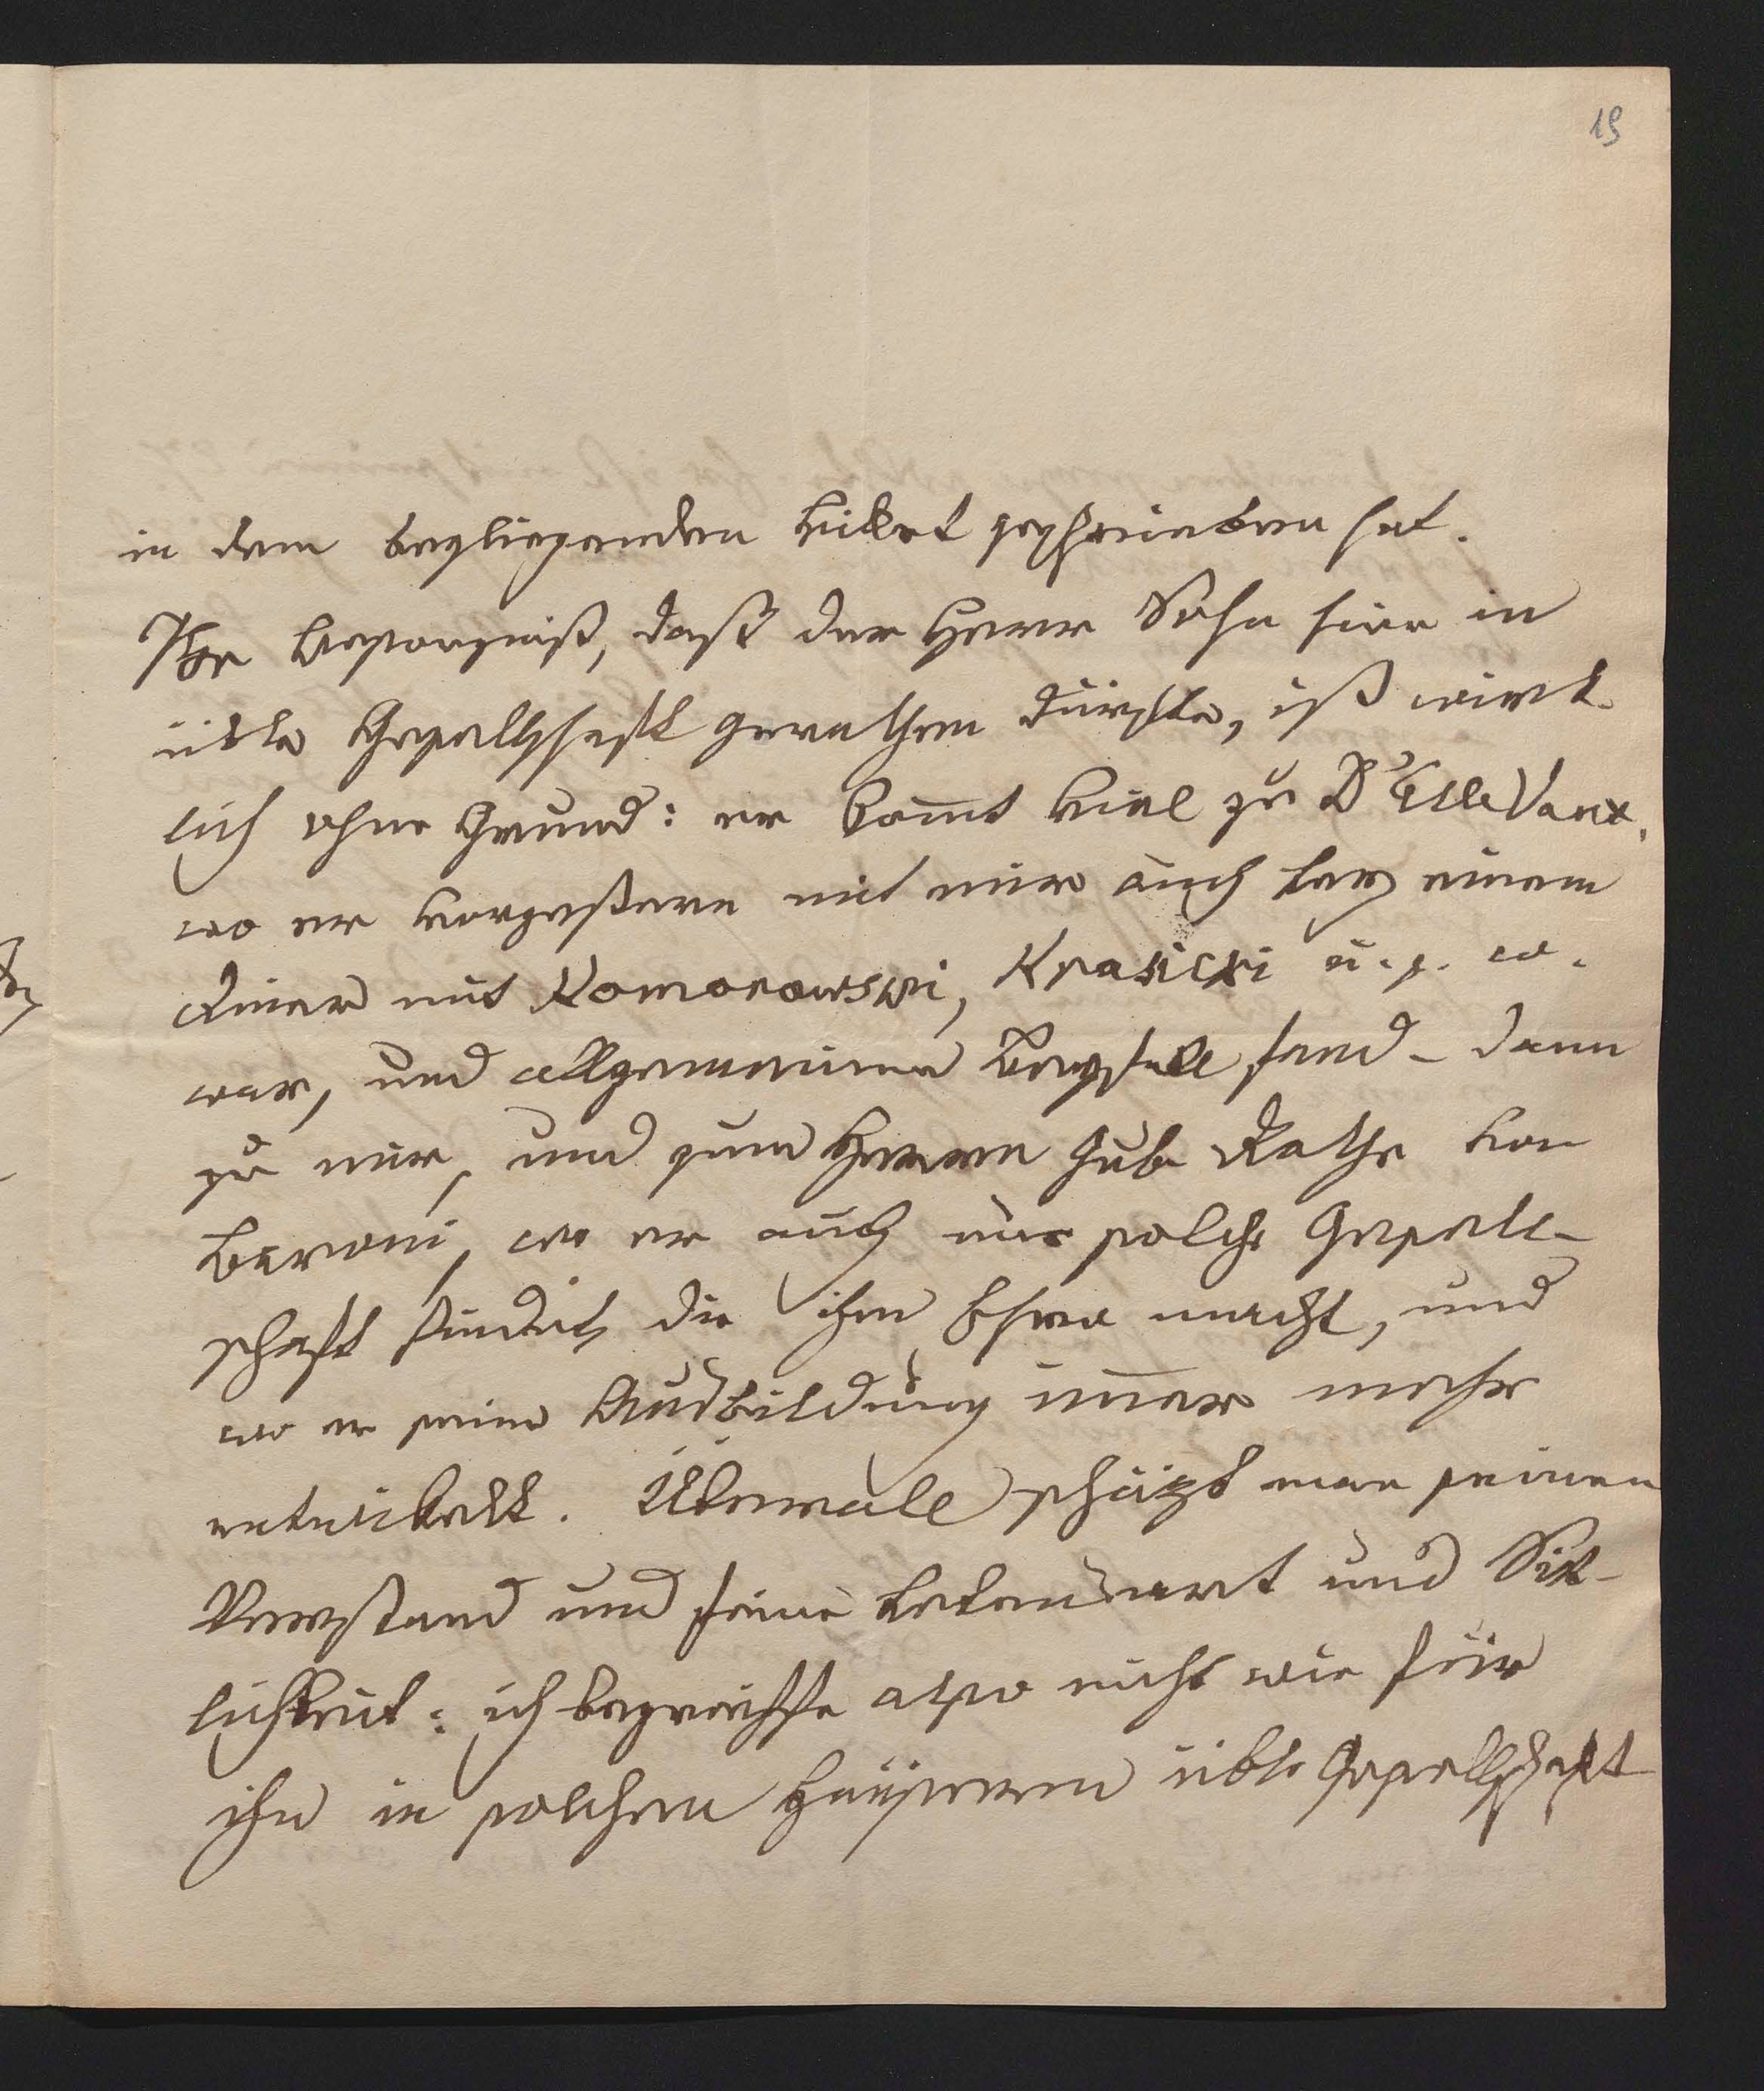 19
in dem beyliegenden Billet geschrieben hat.
Ihre Besorgniß, daß der Herr Sohn hier in
üble Gesellschaft gerathen dürfte, ist wirk-
lich ohne Grund: er kom̅t viel zu D'Ellevaux,
wo er vorgestern mit mir auch bey einem
Diner mit Komorowski, Krasicki u. s. w.
war, und allgemeinen Beyfall fand – dann
zu mir, und zum Herrn Gub Rathe von
Baroni, wo er auch nur solche Gesell-
schaft findet, die ihm Ehre macht, und
wo er seine Ausbildung im̅er mehr
entwickelt. Überall schäzt man seinen
Verstand und feine Lebensart und Sit-
lichkeit: ich begreiffe also nicht wie für
ihn in solchen Häusern üble Gesellschaft